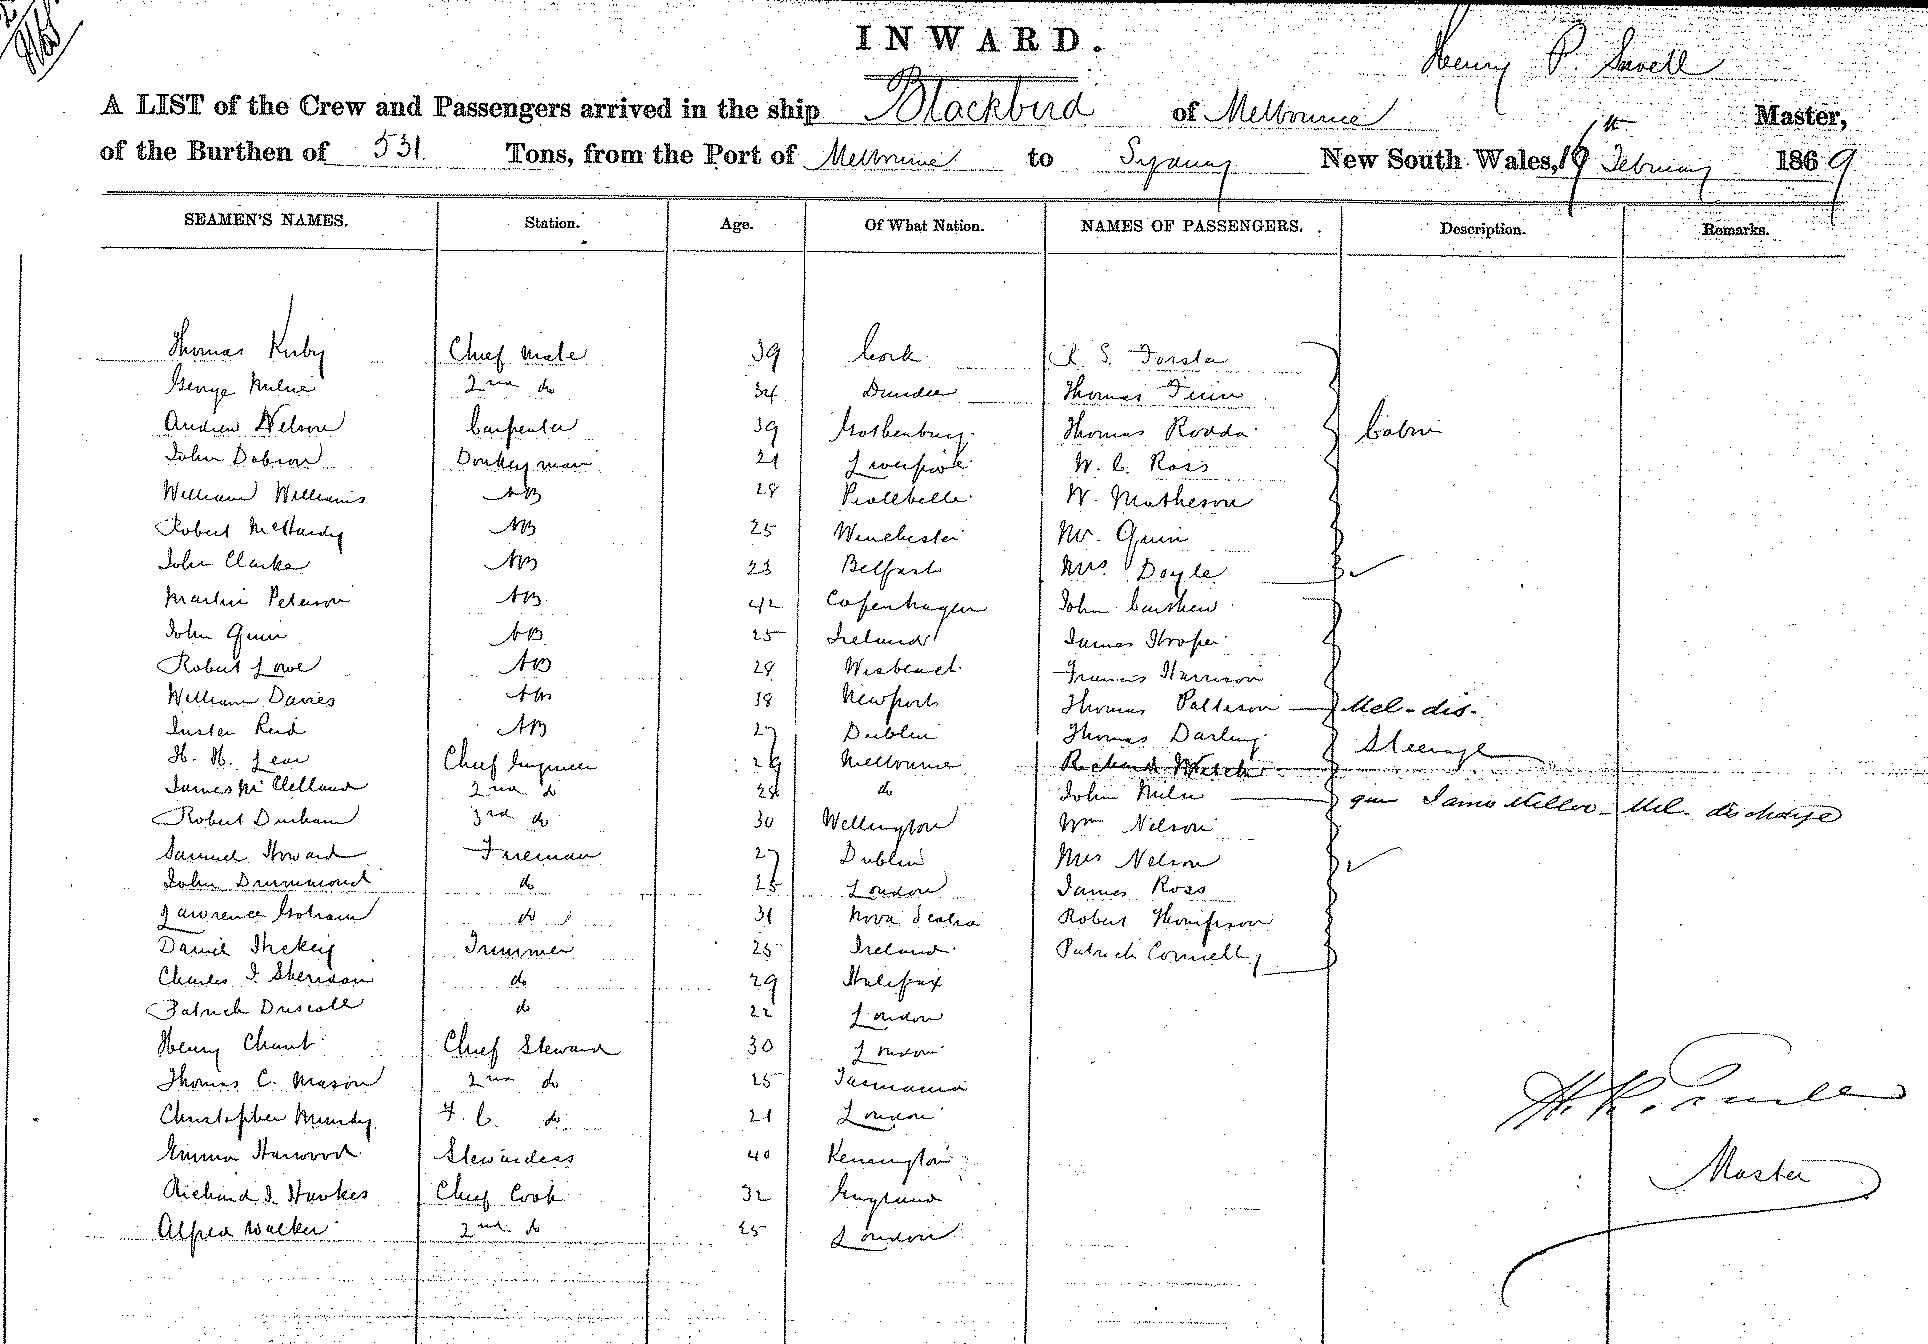 INWARD.
Henry P.
A LIST of the Crew and Passengers arrived in the ship Blackbird of Melbourne Master,
of the Burthen of 531 Tons, from the Port of Melbourne to Sydney New South Wales, February 1869
SEAMEN'S NAMES. Station. Age. Of What Nation. NAMES OF PASSENGERS. Description. Remarks.
Thomas Kirby Chief Mate 39 Cork S. Forster
George Milne 2nd do 34 Dundee Thomas Finn
Andrew Nelson Carpenter 39 Gothenburg Thomas Rodda Cabin
John Dobson Donkeyman 21 Liverpool W. C. Ross
William Williams AB 28 W. Matheson
Robert McHardy AB 25 Winchester Mr. Quin
John Clarke AB 23 Belfast Mrs Doyle
Martin Peterson AB 42 Copenhagen John
John Quin AB 25 Ireland James Hooper
Robert Lowe AB 28 Francis Harrison
William Davies AB 18 Newport Thomas Patterson Mel. dis.
Reid AB 27 Dublin Thomas Darling Steerage
H. H. Lear Chief Engineer 29 Melbourne Richard
James McClelland 2nd do 28 do John Milne James Miller Mel. discharge
Robert Durham 3rd do 30 Wellington Wm Nelson
Samuel Howard Fireman 27 Dublin Mrs Nelson
John Drummond do 25 London James Ross
Lawrence Gotham do 31 Nova Scotia Robert Thompson
Daniel Hickey Trimmer 25 Ireland Patrick Connelly
Charles J. Sheridan do 29 Halifax
Patrick Driscoll do 22 London
Henry Chant Chief Steward 30 London
Thomas C. Mason 2nd do 25 Tasmania
Christopher Mundy F. C. do 21 London
Emma Harwood Stewardess 40 Kensington
Richard J. Hawkes Chief Cook 32 England
Alfred Walker 2nd do 25 London
Master